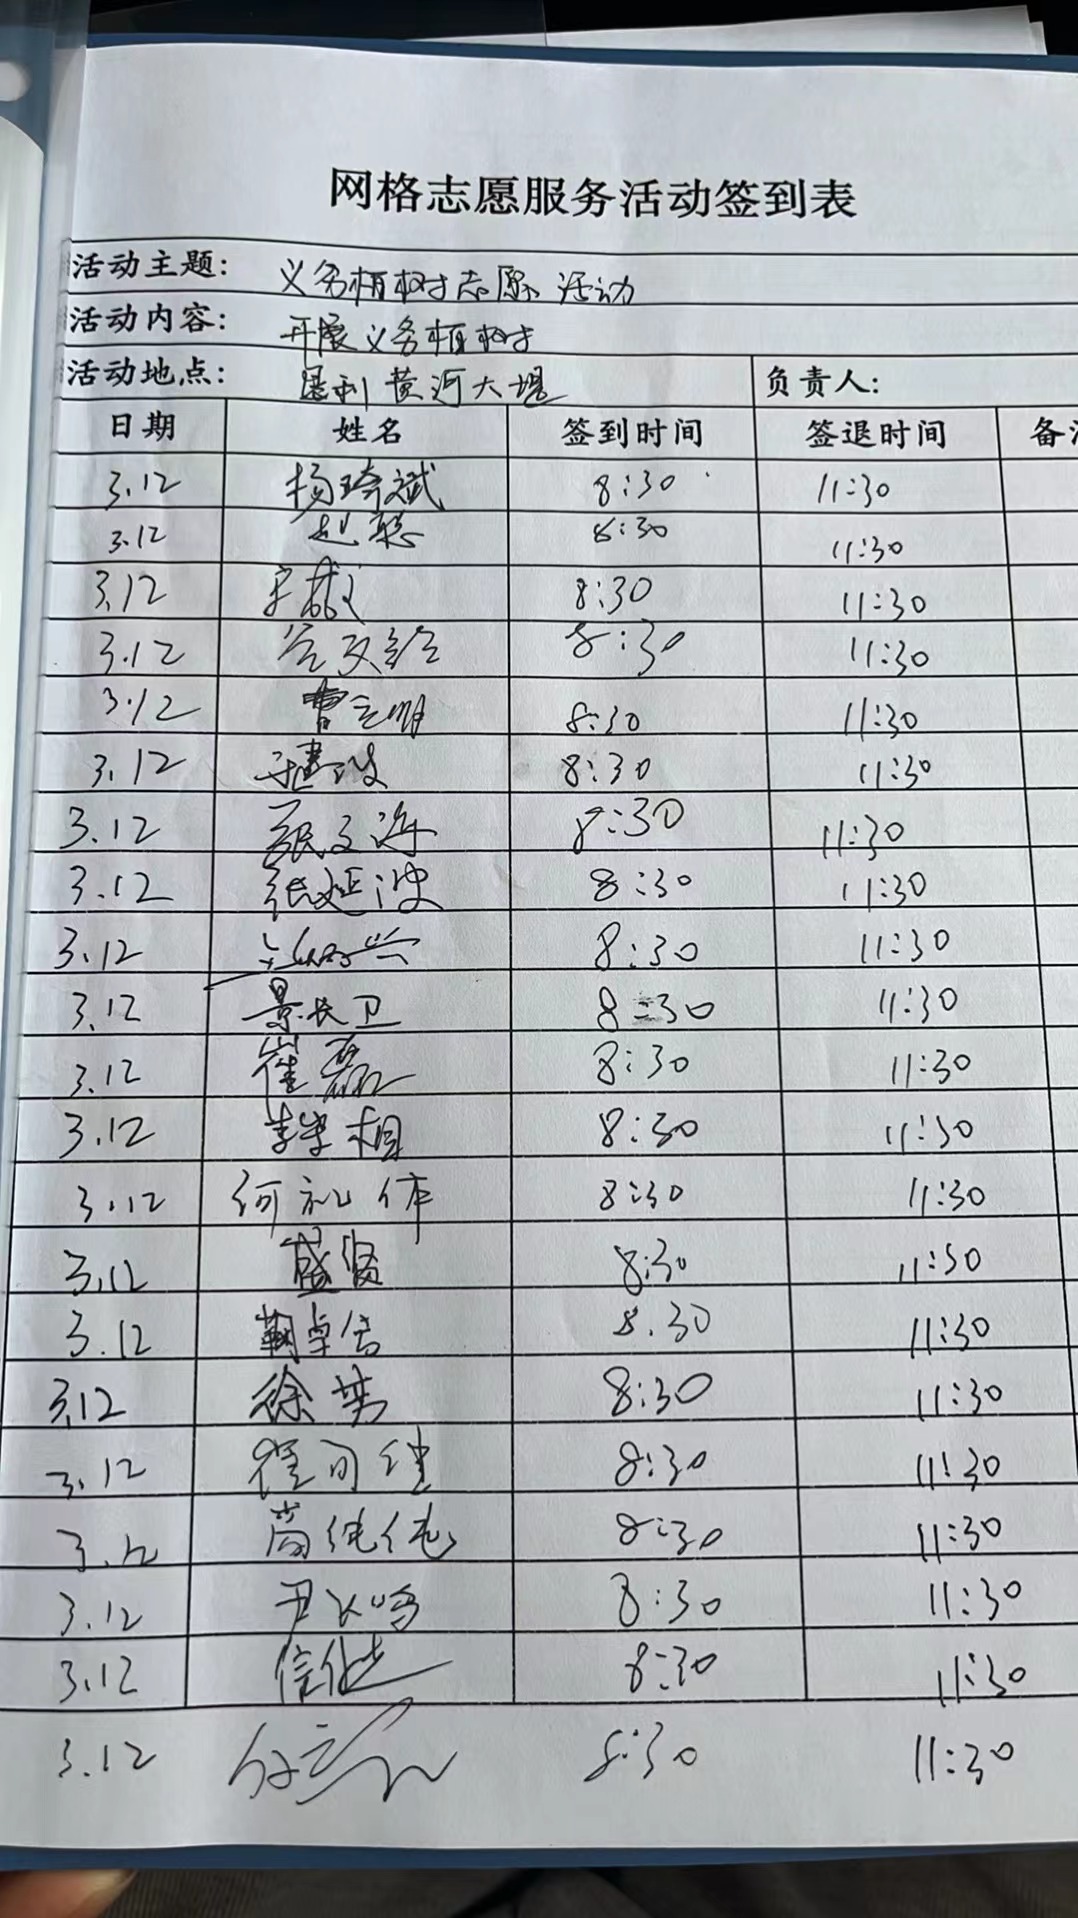 网格志愿服务活动签到表
活动主题: 义务植树志愿活动
活动内容: 开展义务植树
活动地点: 垦利黄河大堤 负责人:
日期 姓名 签到时间 签退时间 备
3.12 杨琦斌 8:30 11:30
3.12 赵聪 8:30 11:30
3.12 8:30 11:30
3.12 8:30 11:30
3.12 曹立明 8:30 11:30
3.12 8:30 11:30
3.12 张文海 8:30 11:30
3.12 张延波 8:30 11:30
3.12 8:30 11:30
3.12 景长卫 8:30 11:30
3.12 崔磊 8:30 11:30
3.12 8:30 11:30
3.12 何礼伟 8:30 11:30
3.12 盛贤 8:30 11:30
3.12 8.30 11:30
3.12 徐 8:30 11:30
3.12 8:30 11:30
3.12 8:30 11:30
3.12 尹 8:30 11:30
3.12 8:30 11:30
3.12 8:30 11:30